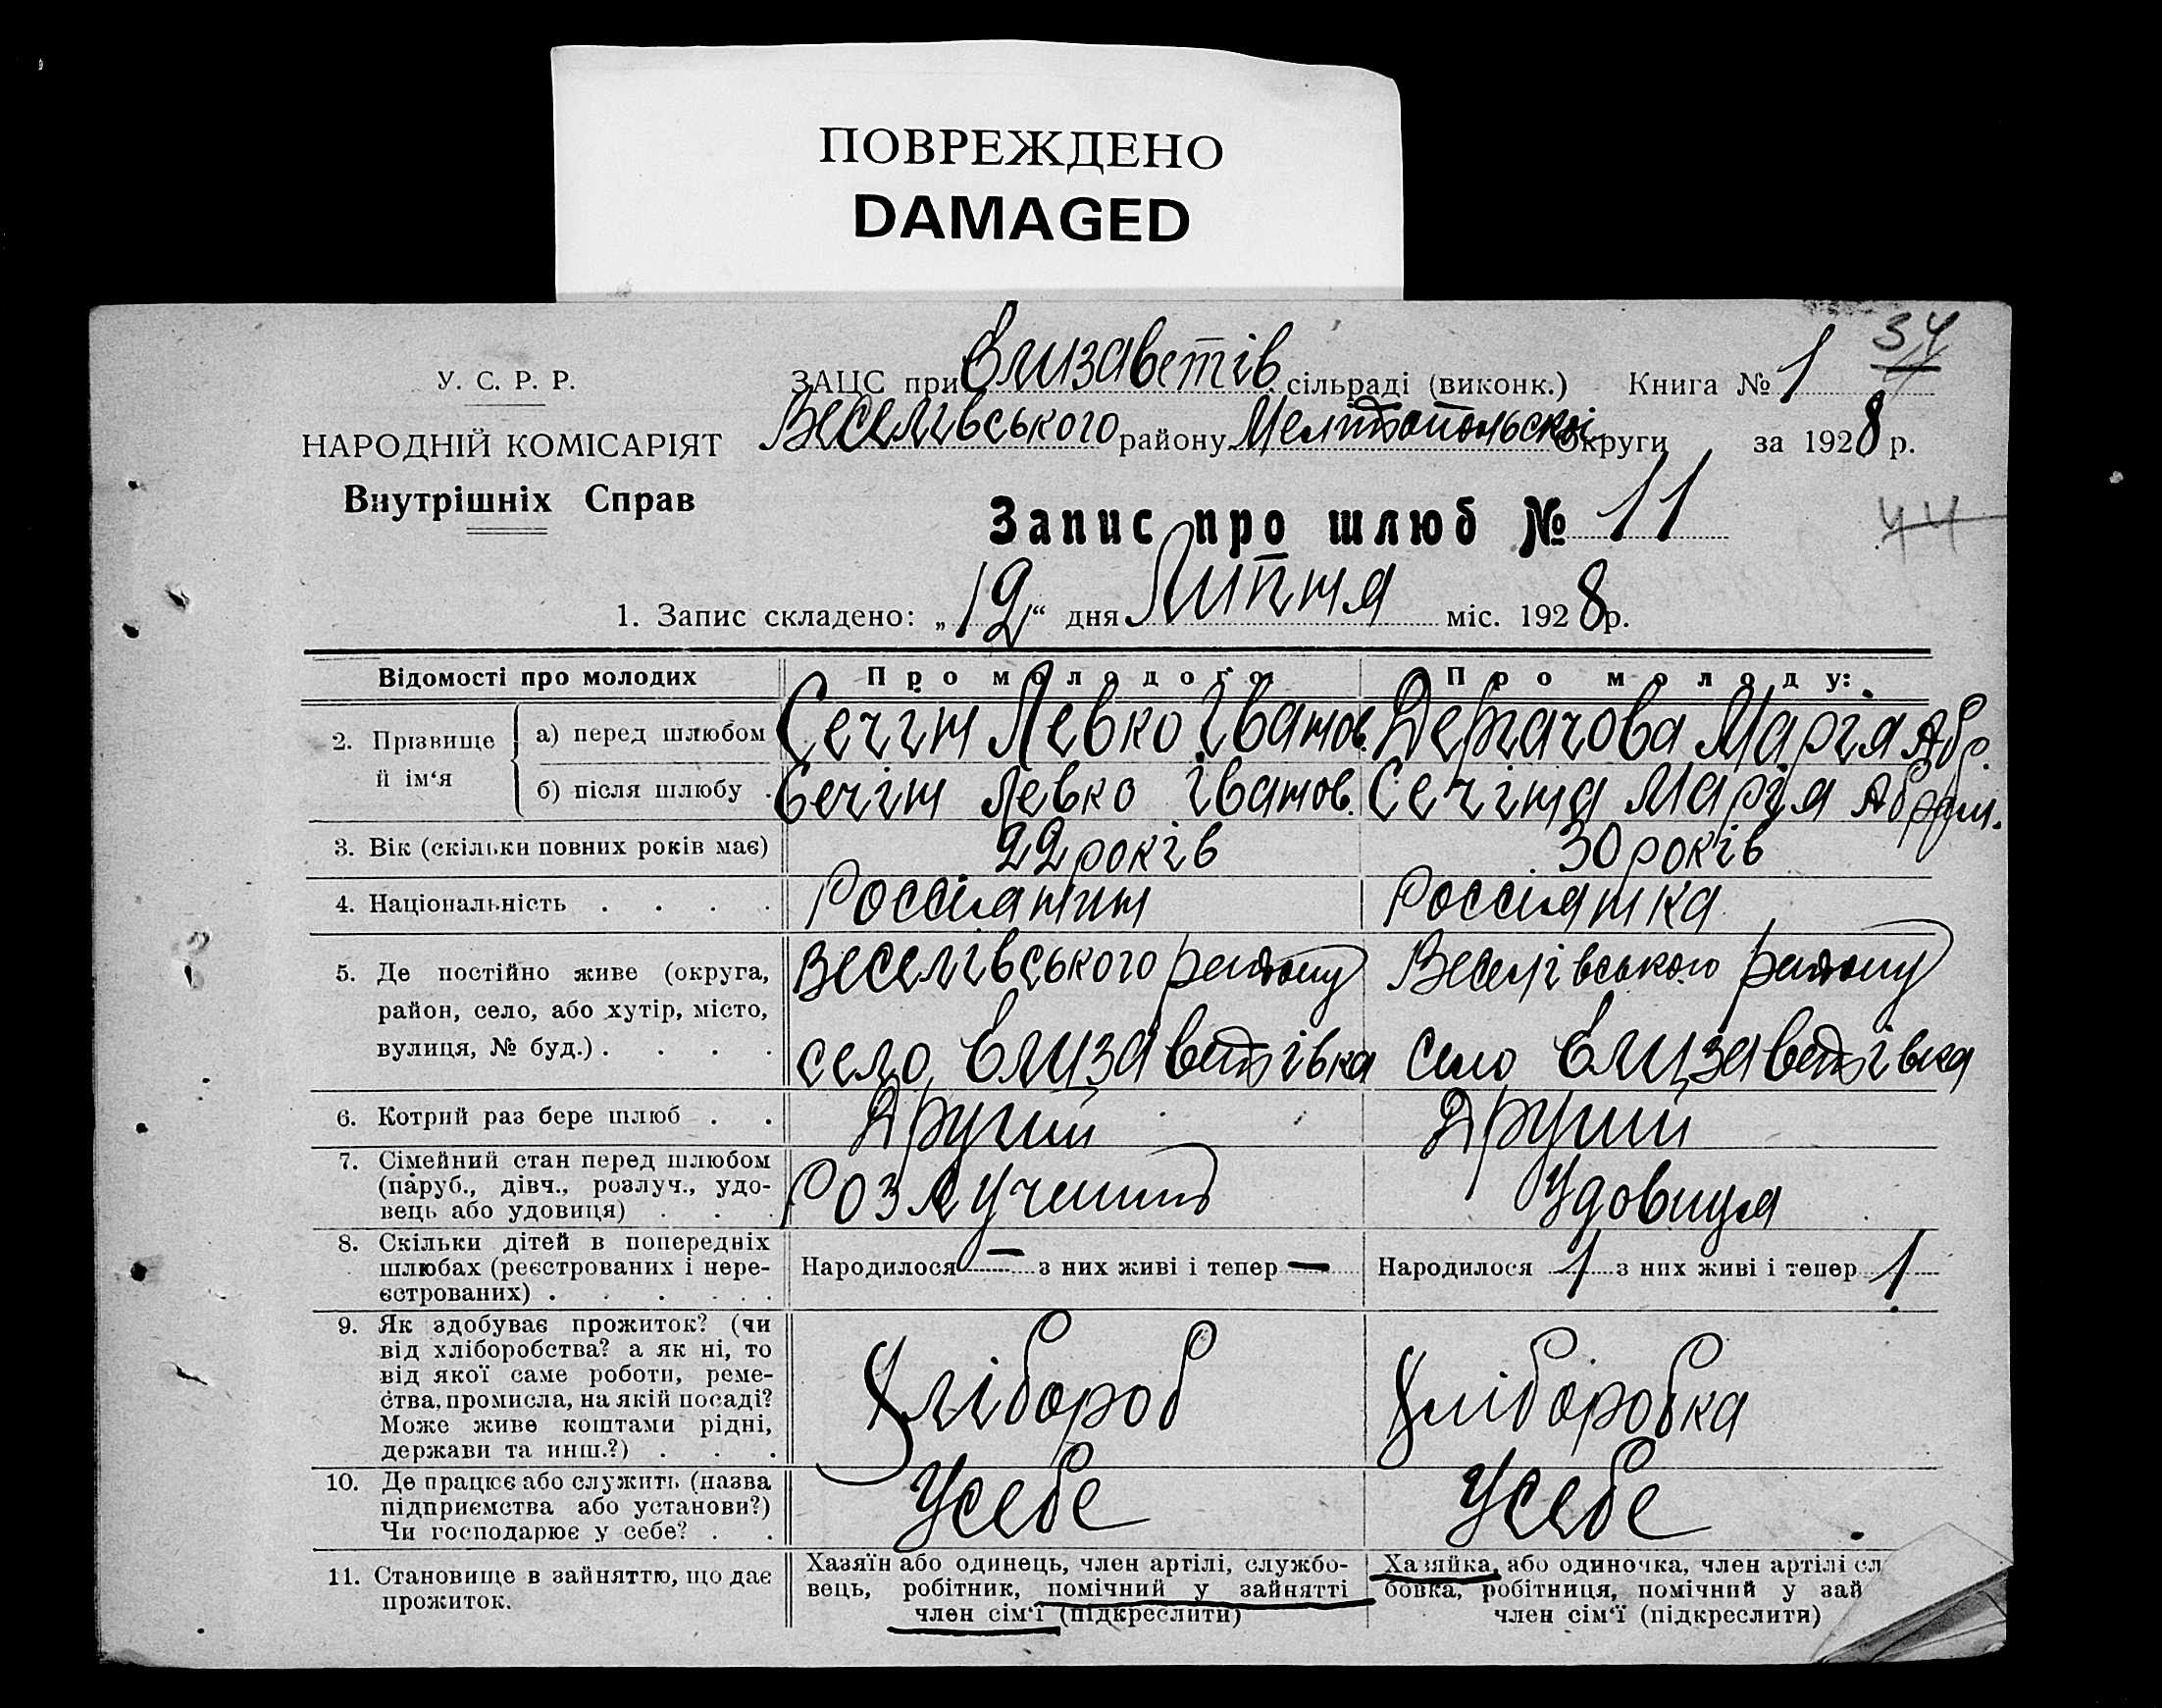 ПОВРЕЖДЕНО
DAMAGED
34
У. С. Р. Р.
НАРОДНІЙ КОМІСАРІЯТ
Внутрішніх Справ
ЗАЦС при Єлизаветів сільраді (виконк.) Книга № 1
Веселівського району Мелітопольскої Округи за 1928 р.
Запис про шлюб № 11
44
1. Запис складено: „12“ дня Липня міс. 1928 р.
Відомості про молодих
Про молодого:
Про молоду:
2. Прізвище й ім‘я
а) перед шлюбом
Сечін Левко Іванов.
Дергачова Марія Абр.
б) після шлюбу .
Сечін Левко Іванов.
Сечіна Марія Абрам.
3. Вік (скільки повних років має)
22 років
30 років
4. Національність . . . .
Россиянин
Россиянка
5. Де постійно живе (округа,
район, село, або хутір, місто,
вулиця, № буд.) . . . .
Веселівського району
село Єлизаветівка
Веселівського району
село Єлизаветівка
6. Котрий раз бере шлюб . .
Другий
Другий
7. Сімейний стан перед шлюбом
(паруб., дівч., розлуч., удо-
вець або удовиця) . . .
Розлучений
Удовиця
8. Скільки дітей в попередніх
шлюбах (реєстрованих і нере-
єстрованих) . . . . . .
Народилося — з них живі і тепер —
Народилося 1 з них живі і тепер 1
9. Як здобуває прожиток? (чи
від хліборобства? а як ні, то
від якої саме роботи, реме-
ства, промисла, на якій посаді?
Може живе коштами рідні,
держави та инш.?) . . .
Хлібороб
Хліборобка
10. Де працює або служить (назва
підприємства або установи?)
Чи господарює у себе? . .
Усебе
Усебе
11. Становище в зайняттю, що дає
прожиток.
Хазяїн або одинець, член артілі, службо-
вець, робітник, помічний у зайнятті
член сім‘ї (підкреслити)
Хазяйка, або одиночка, член артілі сл
бовка, робітниця, помічний у зай
член сім‘ї (підкреслити)